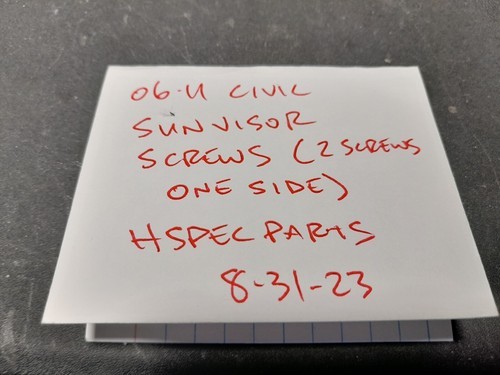 06-11 CIVIC
SUNVISOR
SCREWS (2 SCREWS
ONE SIDE)
HSPEC PARTS
8-31-23